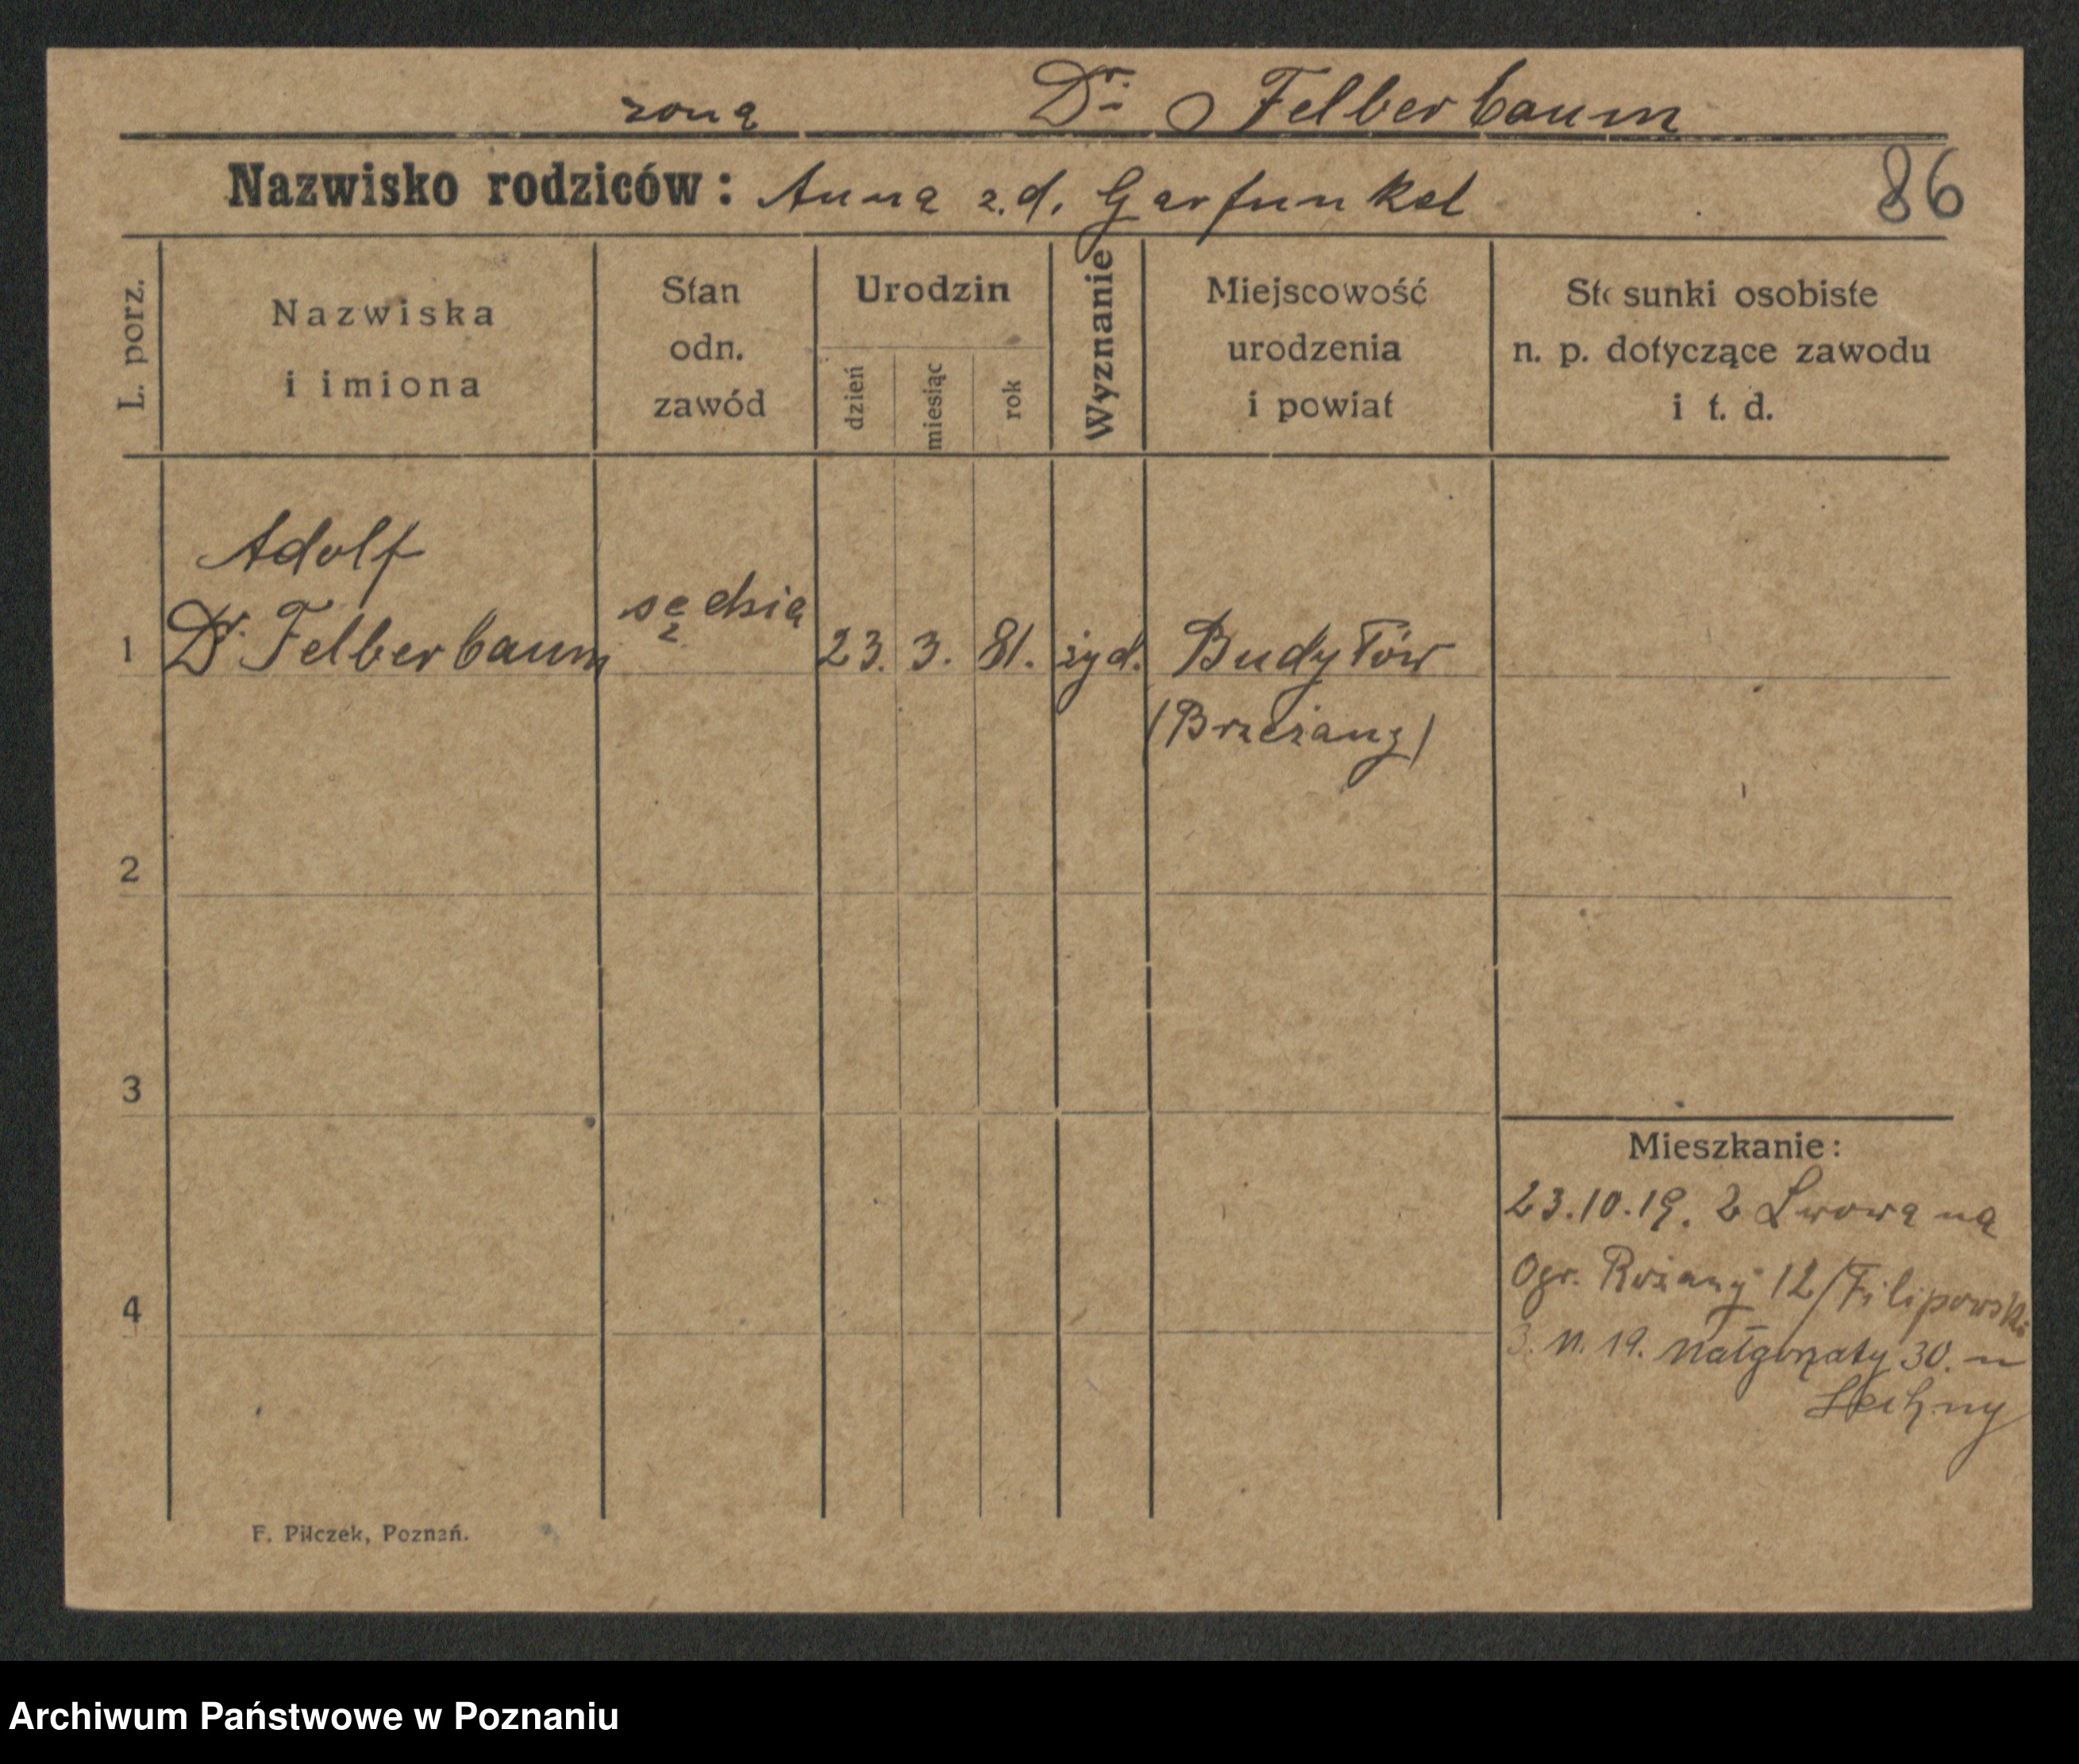 żona Dr. Felberbaum
Nazwisko rodziców: Anna z.d. Garfunkel
86
L. porz.
Nazwiska
i imiona
Stan
odn.
zawód
Urodzin
dzień
miesiąc
rok
Wyznanie
Miejscowość
urodzenia
i powiat
Stosunki osobiste
n. p. dotyczące zawodu
i t. d.
Adolf
1 Dr. Felberbaum sędzia 23. 3. 81. żyd. Budyłów
(Brzeżany)
2
3
Mieszkanie:
23.10.19. z Lwowa na
Ogr. Różany 12/Filipowski
4
3. 11. 19. Małgorzaty 30. u
F. Piłczek, Poznań.
Archiwum Państwowe w Poznaniu